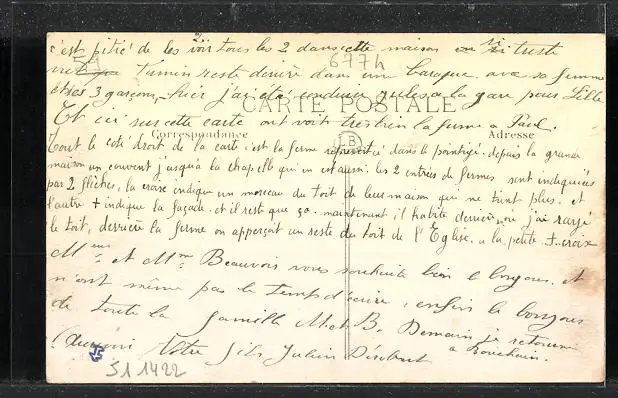 c'est pitié de les voir tous les 2 dans cette maison si triste
Firmin reste derière dans une baraque avec sa femme
et ses 3 garçons, hier j'ai été conduire Jules a la gare pour Lille
677h
CARTE POSTALE
Et ici sur cette carte ont voit très bien la ferme a Paul.
Correspondance
Adresse
LB
Tout le coté droit de la carte c'est la ferme représenté dans le pointigé. depuis la grande
maison un couvent jusqu'à la chapelle qui en est aussi. les 2 entrées de fermes sont indiquées
par 2 flèches, la croix indique un morceau du toit de leur maison qui ne tient plus. et
l'autre + indique la façade. et il reste que ça. maintenant il habite derrière où j'ai rasgé
le toit, derrière la ferme on apperçoit un reste du toit de l'Eglise. a la petite + croix
Mr et Mme Beauvois vous souhaite bien le bonjour. et
n'ont même pas le temps d'écrire, enfin le bonjour
de toute la famille M et B. Demain je retourne
a Bouchain.
Votre fils Julien Désobert
S1 1422